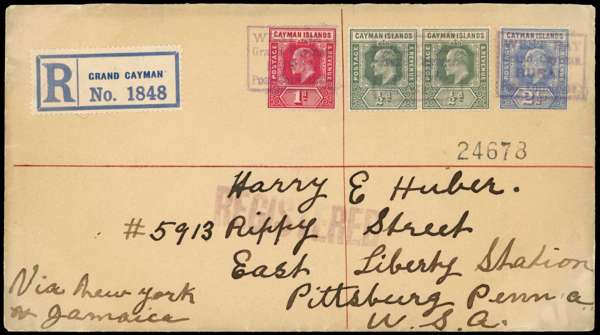 R GRAND CAYMAN
No. 1848
CAYMAN ISLANDS
POSTAGE & REVENUE
1d
CAYMAN ISLANDS
POSTAGE & REVENUE
½d
CAYMAN ISLANDS
POSTAGE & REVENUE
½d
CAYMAN ISLANDS
POSTAGE & REVENUE
2½d
24678
REGISTERED
Harry E Huber.
#5913 Rippy Street
East Liberty Station
Pittsburg Penn a
U.S.A.
Via New York
or Jamaica